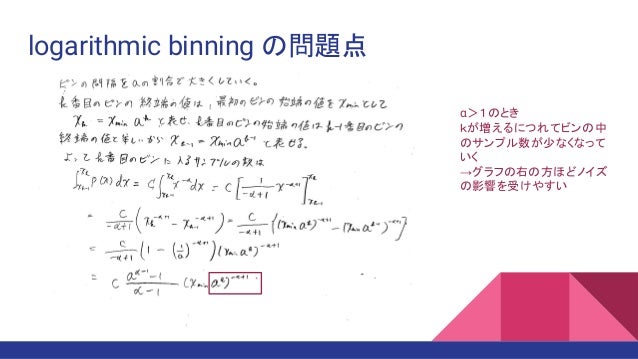 logarithmic binning の問題点
ビンの間隔をaの割合で大きくしていく。
k番目のビンの終端の値は、最初のビンの始端の値をxminとして
x_k = x_min a^k と表せ、k番目のビンの始端の値はk-1番目のビンの
終端の値と等しいから x_{k-1} = x_min a^{k-1} と表せる。
よってk番目のビンに入るサンプルの数は
∫_{x_{k-1}}^{x_k} p(x) dx = C∫_{x_{k-1}}^{x_k} x^{-α} dx = C [ 1/(-α+1) x^{-α+1} ]_{x_{k-1}}^{x_k}
= C/(-α+1) (x_k^{-α+1} - x_{k-1}^{-α+1}) = C/(-α+1) {(x_min a^k)^{-α+1} - (x_min a^{k-1})^{-α+1}}
= C/(-α+1) (1 - (1/a)^{-α+1}) (x_min a^k)^{-α+1}
= C (a^{α-1} - 1)/(α-1) (x_min a^k)^{-α+1}
α＞１のとき
kが増えるにつれてビンの中
のサンプル数が少なくなって
いく
→グラフの右の方ほどノイズ
の影響を受けやすい